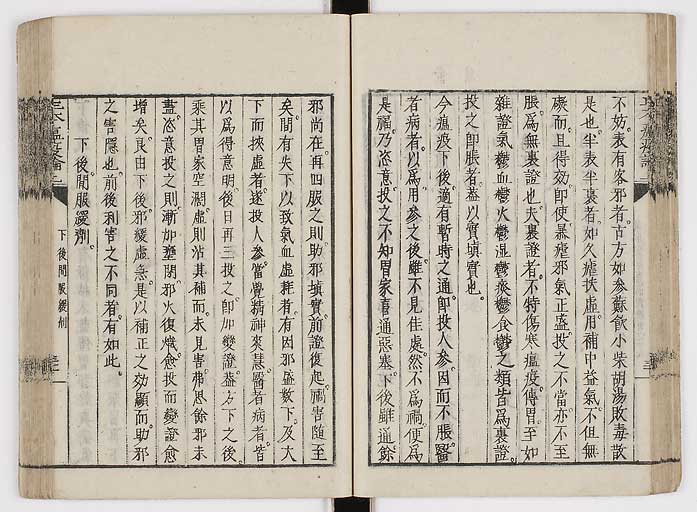 不妨。表有客邪者。古方如參蘇飲小柴胡湯敗毒散
是也。半表半裏者。如久瘧挾虛。用補中益氣。不但無
礙。而且得效。即使暴瘧。邪氣正盛。投之不當。亦不至
脹。為無裏證也。夫裏證者。不特傷寒瘟疫傳胃。至如
雜證氣鬱血鬱火鬱濕鬱痰鬱食鬱之類。皆為裏證。
投之即脹者。蓋以實填實也。
今瘟疫下後。適有暫時之通。即投人參。因而不脹。醫
者病者。以為用參之後。雖不見佳處。然不為禍。便為
是福。乃恣意投之。不知胃家喜通惡塞。下後雖通。餘
邪尚在。再四服之。則助邪填實。前證復起。禍害隨至
矣。間有失下以致氣血虛耗者。有因邪盛數下。及大
下而挾虛者。遂投人參。當覺精神爽慧。醫者病者。皆
以為得意。明後日再三投之。即加變證。蓋方下之後。
乘其胃家空濶。虛則沾其補。而未見害。弗思餘邪未
盡。恣意投之。則漸加壅閉。邪火復熾。愈投而變證愈
增矣。良由下後邪緩虛急。是以補正之効顯。而助邪
之害隱也。前後利害之不同者。有如此。
下後間服緩劑。
下後間服緩劑